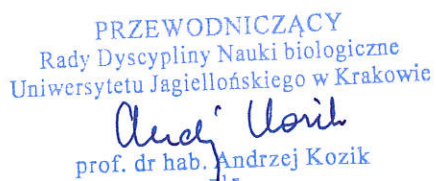 PRZEWODNICZĄCY
Rady Dyscypliny Nauki biologiczne
Uniwersytetu Jagiellońskiego w Krakowie
Andrzej Kozik
prof. dr hab. Andrzej Kozik